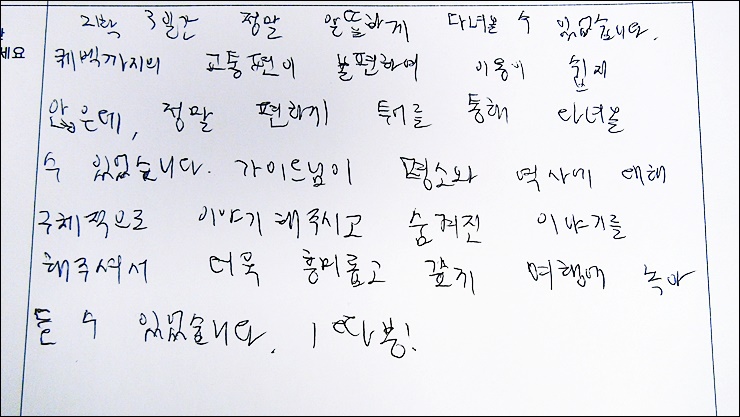 2박 3일간 정말 알뜰하게 다녀올 수 있었습니다.
세요
퀘벡까지의 교통편이 불편하여 이동이 쉽지
않은데, 정말 편하게 투어를 통해 다녀올
수 있었습니다. 가이드님이 명소와 역사에 대해
구체적으로 이야기해주시고 숨겨진 이야기를
해주셔서 더욱 흥미롭고 깊게 여행에 녹아
들 수 있었습니다. 1따봉!